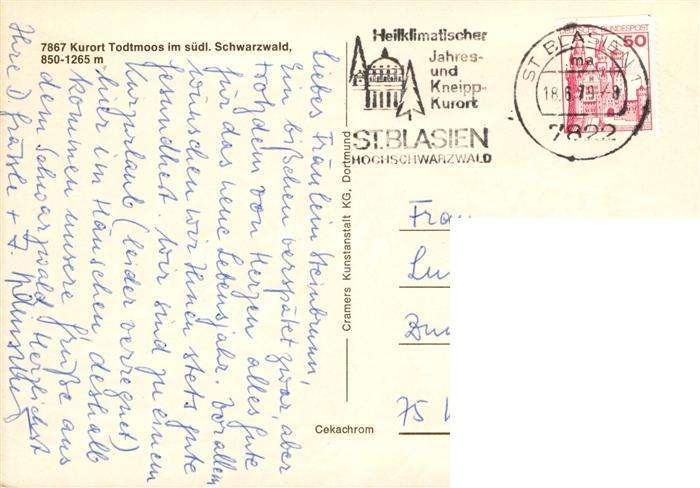 7867 Kurort Todtmoos im südl. Schwarzwald,
850-1265 m
Liebes Fräulein Steinbrunn,
Ein bißchen verspätet zwar, aber
trotzdem von Herzen alles Gute
für das neue Lebensjahr. Vor allem
wünschen wir Ihnen stets gute
Gesundheit. Wir sind zu einem
Kurzurlaub (leider verregnet)
hier im Häuschen, deshalb
kommen unsere Grüße aus
dem Schwarzwald. Herzlichst
Ihre
Cramers Kunstanstalt KG, Dortmund
Cekachrom
Heilklimatischer
Jahres-
und
Kneipp-
Kurort
ST. BLASIEN
HOCHSCHWARZWALD
ST BLASIEN 1
ma
18.6.79.-8
7822
DEUTSCHE BUNDESPOST
50
Frau
75